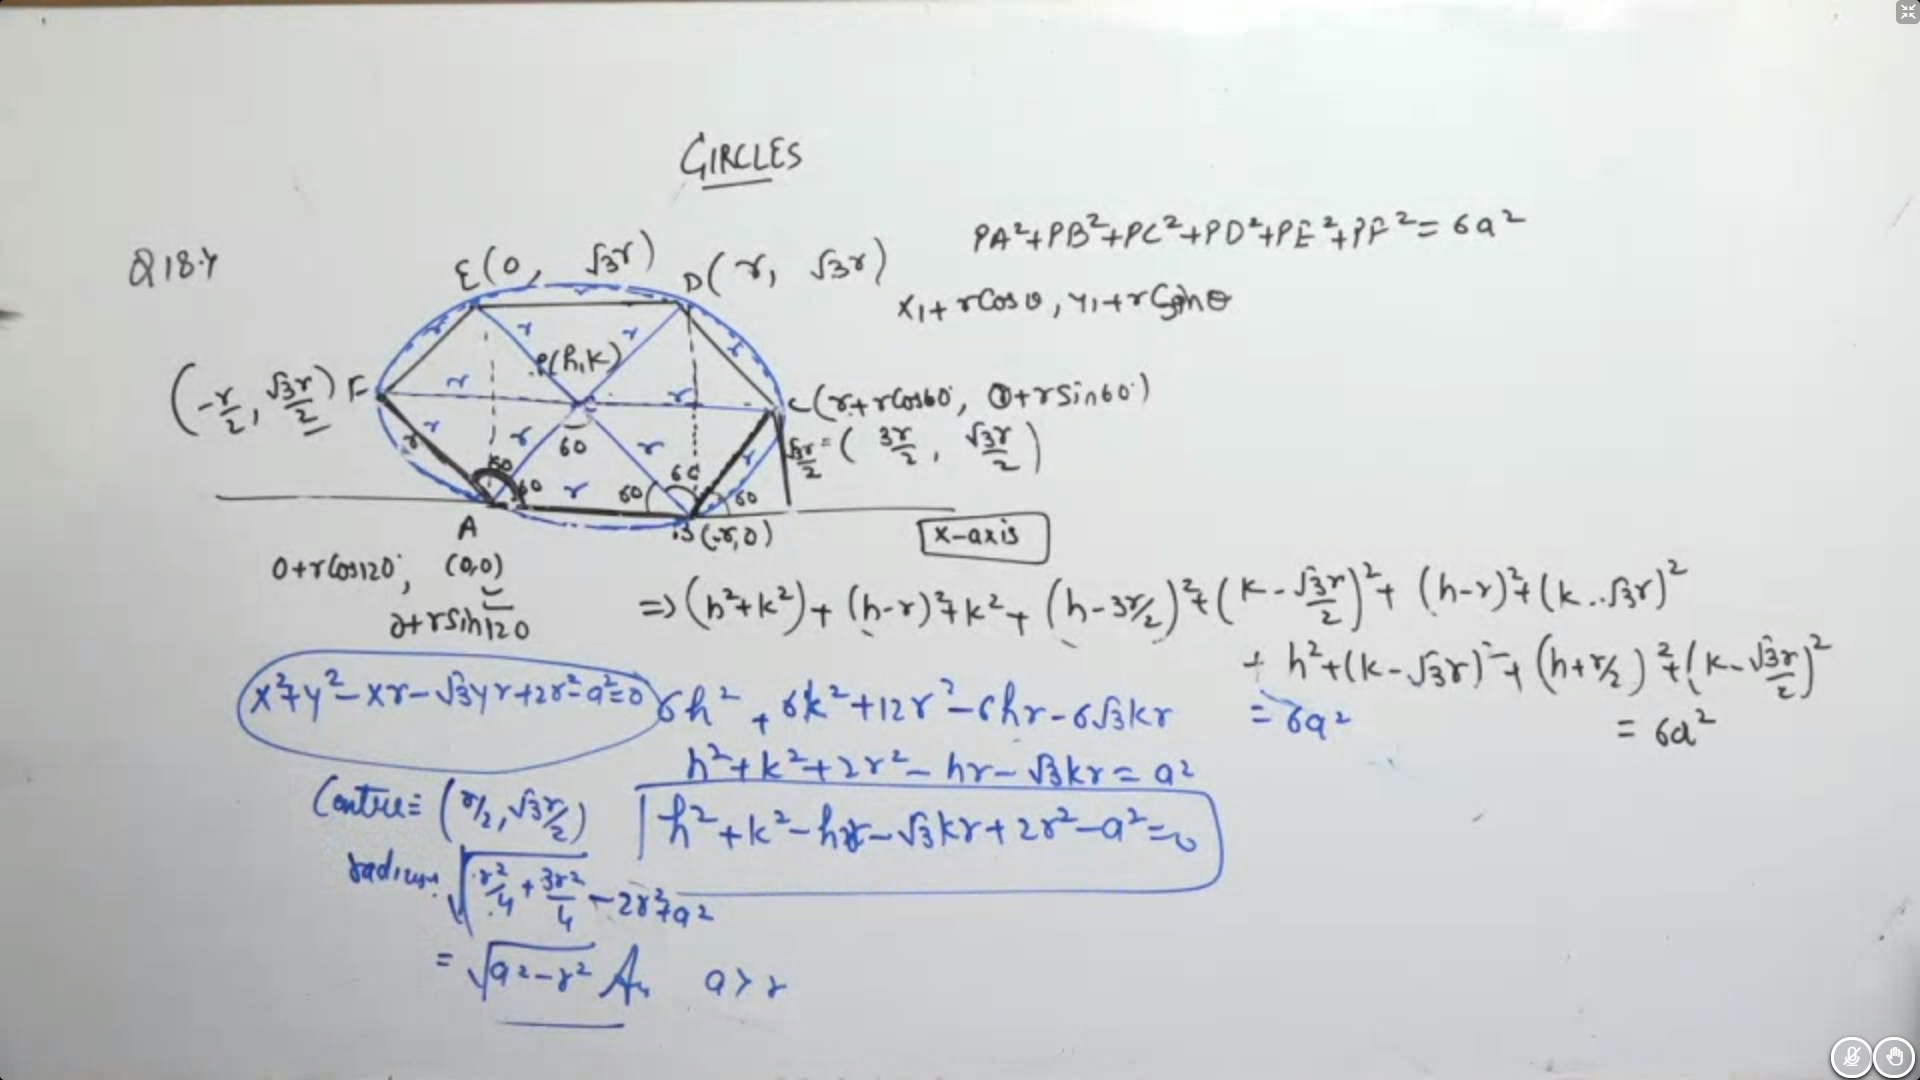 CIRCLES
Q18.4
PA²+PB²+PC²+PD²+PE²+PF²=6a²
x₁+rCosθ, y₁+rSinθ
E(0, √3r)
D(r, √3r)
P(h,k)
(-r/2, √3r/2) F
C(r+rCos60°, 0+rSin60°)
=(3r/2, √3r/2)
√3r/2
r r r r r r r r r r r r
60 60 60 60 60 60
A
(0,0)
B(r,0)
x-axis
0+rCos120°,
0+rSin120
⇒(h²+k²)+(h-r)²+k²+(h-3r/2)²+(k-√3r/2)²+(h-r)²+(k-√3r)²
+h²+(k-√3r)²+(h+r/2)²+(k-√3r/2)²
=6a²
6h²+6k²+12r²-6hr-6√3kr =6a²
h²+k²+2r²-hr-√3kr=a²
h²+k²-hr-√3kr+2r²-a²=0
x²+y²-xr-√3yr+2r²-a²=0
Centre=(r/2, √3r/2)
radius=√(r²/4+3r²/4-2r²+a²)
=√(a²-r²) Ans a>r